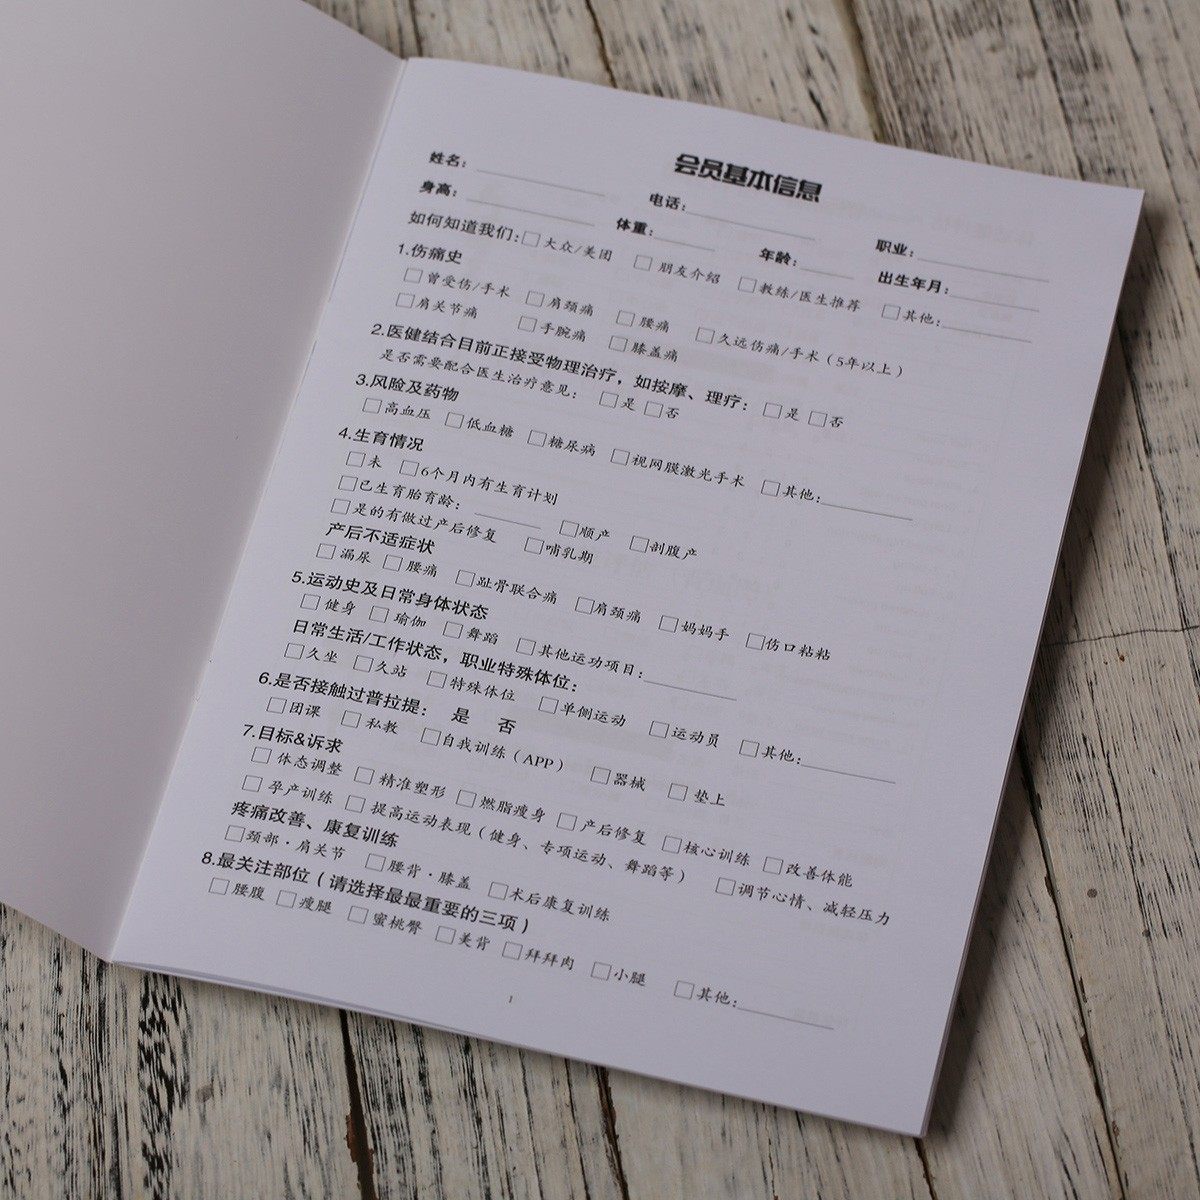 会员基本信息
姓名: 电话: 职业:
身高: 体重: 年龄: 出生年月:
如何知道我们: □大众/美团 □朋友介绍 □教练/医生推荐 □其他:
1.伤痛史
□曾受伤/手术 □肩颈痛 □腰痛 □久远伤痛/手术（5年以上）
□肩关节痛 □手腕痛 □膝盖痛
2.医健结合目前正接受物理治疗，如按摩、理疗: □是 □否
是否需要配合医生治疗意见: □是 □否
3.风险及药物
□高血压 □低血糖 □糖尿病 □视网膜激光手术 □其他:
4.生育情况
□未 □6个月内有生育计划
□已生育胎育龄: □顺产 □剖腹产
□是的有做过产后修复 □哺乳期
产后不适症状
□漏尿 □腰痛 □趾骨联合痛 □肩颈痛 □妈妈手 □伤口粘粘
5.运动史及日常身体状态
□健身 □瑜伽 □舞蹈 □其他运功项目:
日常生活/工作状态，职业特殊体位:
□久坐 □久站 □特殊体位 □单侧运动 □运动员 □其他:
6.是否接触过普拉提: 是 否
□团课 □私教 □自我训练（APP） □器械 □垫上
7.目标&诉求
□体态调整 □精准塑形 □燃脂瘦身 □产后修复 □核心训练 □改善体能
□孕产训练 □提高运动表现（健身、专项运动、舞蹈等） □调节心情、减轻压力
疼痛改善、康复训练
□颈部·肩关节 □腰背·膝盖 □术后康复训练
8.最关注部位（请选择最最重要的三项）
□腰腹 □瘦腿 □蜜桃臀 □美背 □拜拜肉 □小腿 □其他:
1